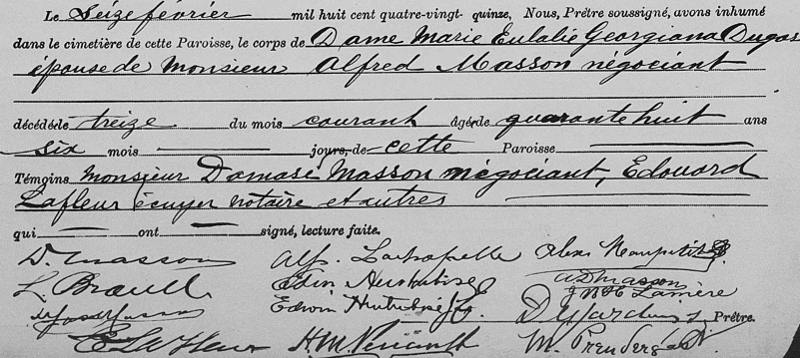 Le Seize février mil huit cent quatre-vingt-quinze, Nous, Prêtre soussigné, avons inhumé
dans le cimetière de cette Paroisse, le corps de Dame Marie Eulalie Georgiana Dugas
épouse de Monsieur Alfred Masson négociant
décédé le treize du mois courant âgé de quarante huit ans
six mois jours, de cette Paroisse
Témoins Monsieur Damase Masson négociant, Edouard
Lafleur écuyer notaire et autres
qui ont signé, lecture faite.
D. Masson Alf. Lachapelle Alex
L. Brault Edin AD Masson
Edwin Prêtre.
E Lafleur H. M.